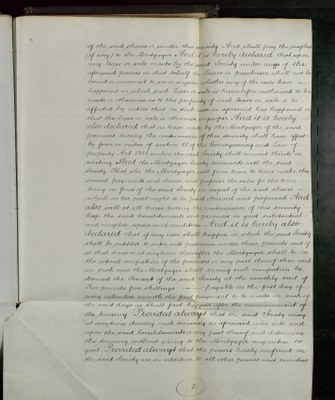 of the said shares or under this security And shall pay the surplus
(if any) to the Mortgagor And it is hereby declared that upon
any lease or sale made by the said Society under any of the
aforesaid powers in that behalf the lessee or purchaser shall not be
bound or concerned to see or inquire whether any of the cases have
happened in which such lease or sale is hereinbefore authorized to be
made or otherwise as to the propriety of such lease or sale or be
affected by notice that no such case as aforesaid has happened or
that the lease or sale is otherwise improper And it is hereby
also declared that no lease made by the Mortgagor of the said
premises during the continuance of this security shall have effect
by force or virtue of section 18 of the Conveyancing and Law of
Property Act 1881 unless the said Society shall consent thereto in
writing And the Mortgagor hereby covenants with the said
Society that she the Mortgagor will from time to time make the
several payments and observe and perform the rules for the time
being in force of the said Society in respect of the said shares
which on her part ought to be paid observed and performed And
also will at all times during the continuance of this security
keep the said hereditaments and premises in good substantial
and complete repair and condition And it is hereby also
declared that if any case shall happen in which the said Society
shall be entitled to enter into possession under these presents and if
at that time or at any time thereafter the Mortgagor shall be in
the actual occupation of the premises or any part thereof then and
in such case the Mortgagor shall during such occupation be
deemed the tenant of the said Society at the monthly rent of
Two pounds five shillings payable on the first day of
every calendar month the first payment to be made on such of
the said days as shall first happen after the commencement of
the tenancy Provided always that the said Society may
at any time during such tenancy as aforesaid enter into and
upon the said hereditaments or any part thereof and determine
the tenancy without giving to the Mortgagor any notice to
quit Provided always that the powers hereby conferred on
the said Society are in addition to all other powers and remedies